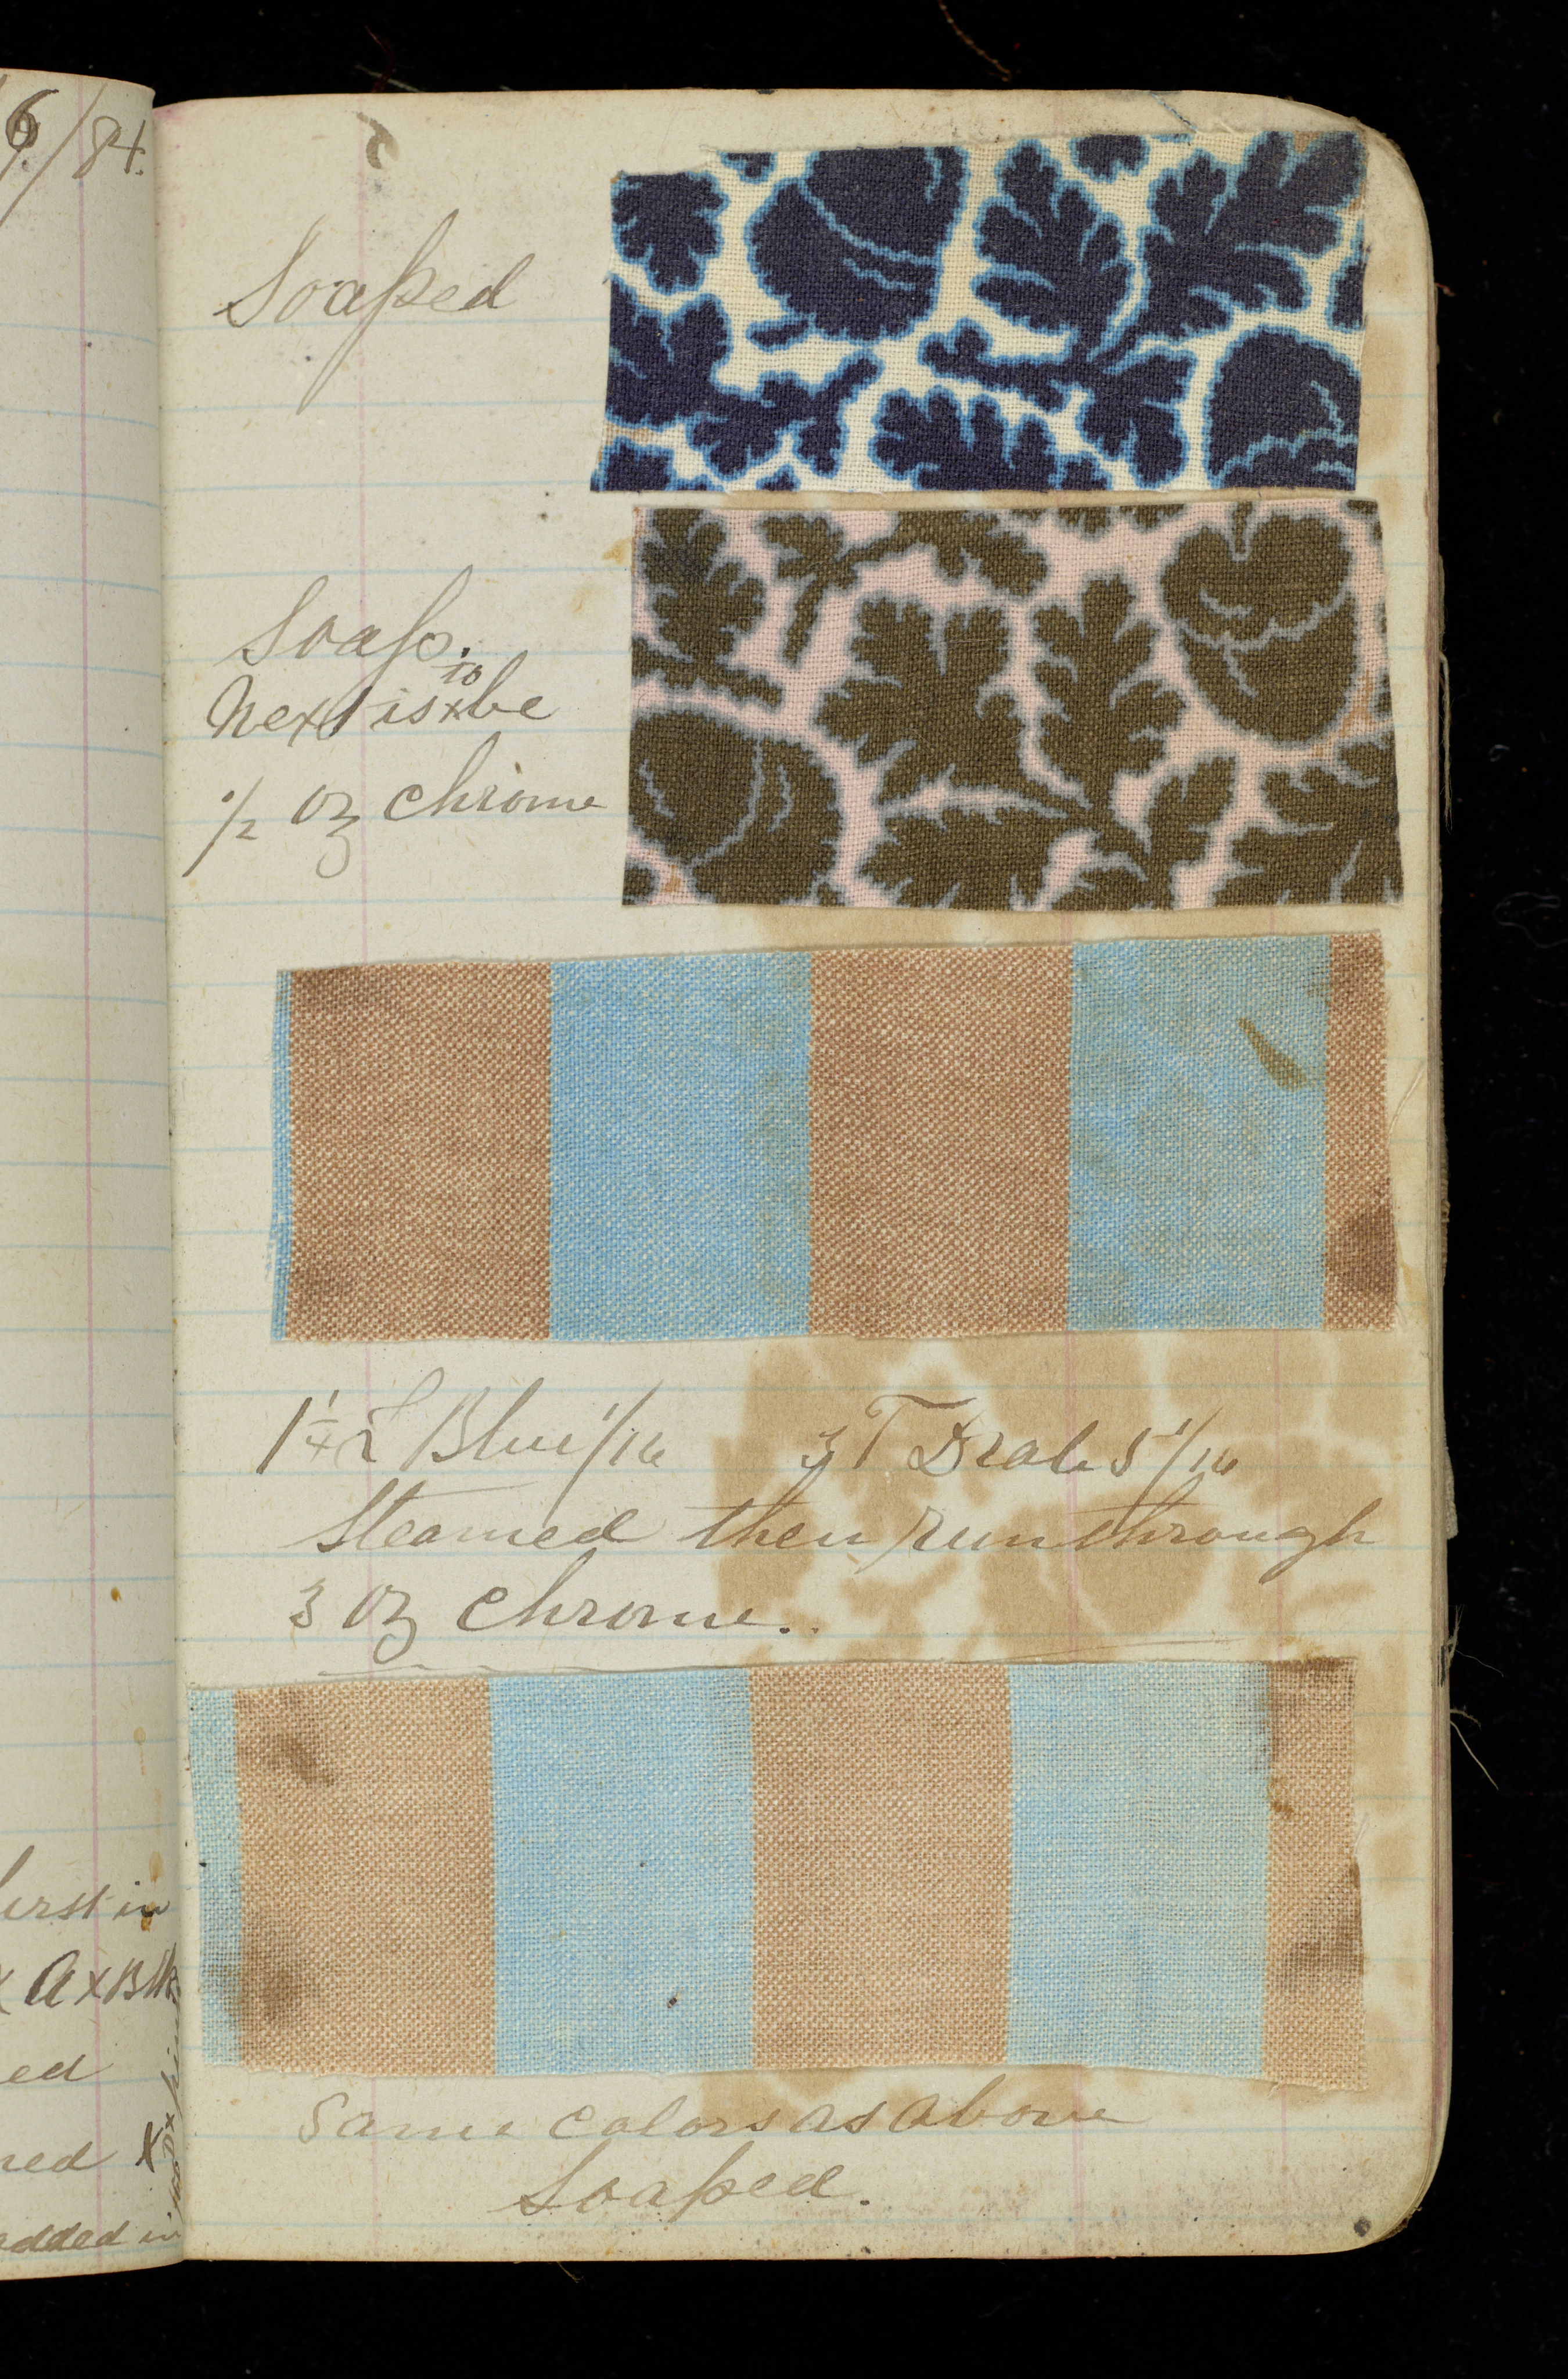 6/84.
Soaped
Soap.
Next is to be
1/2 oz chrome
Blue 1/16 3 T Drab 5 1/16
Steamed then run through
3 oz chrome.
Same colors as above
Soaped.
first in
x A x Blk
ed
ned x
added in